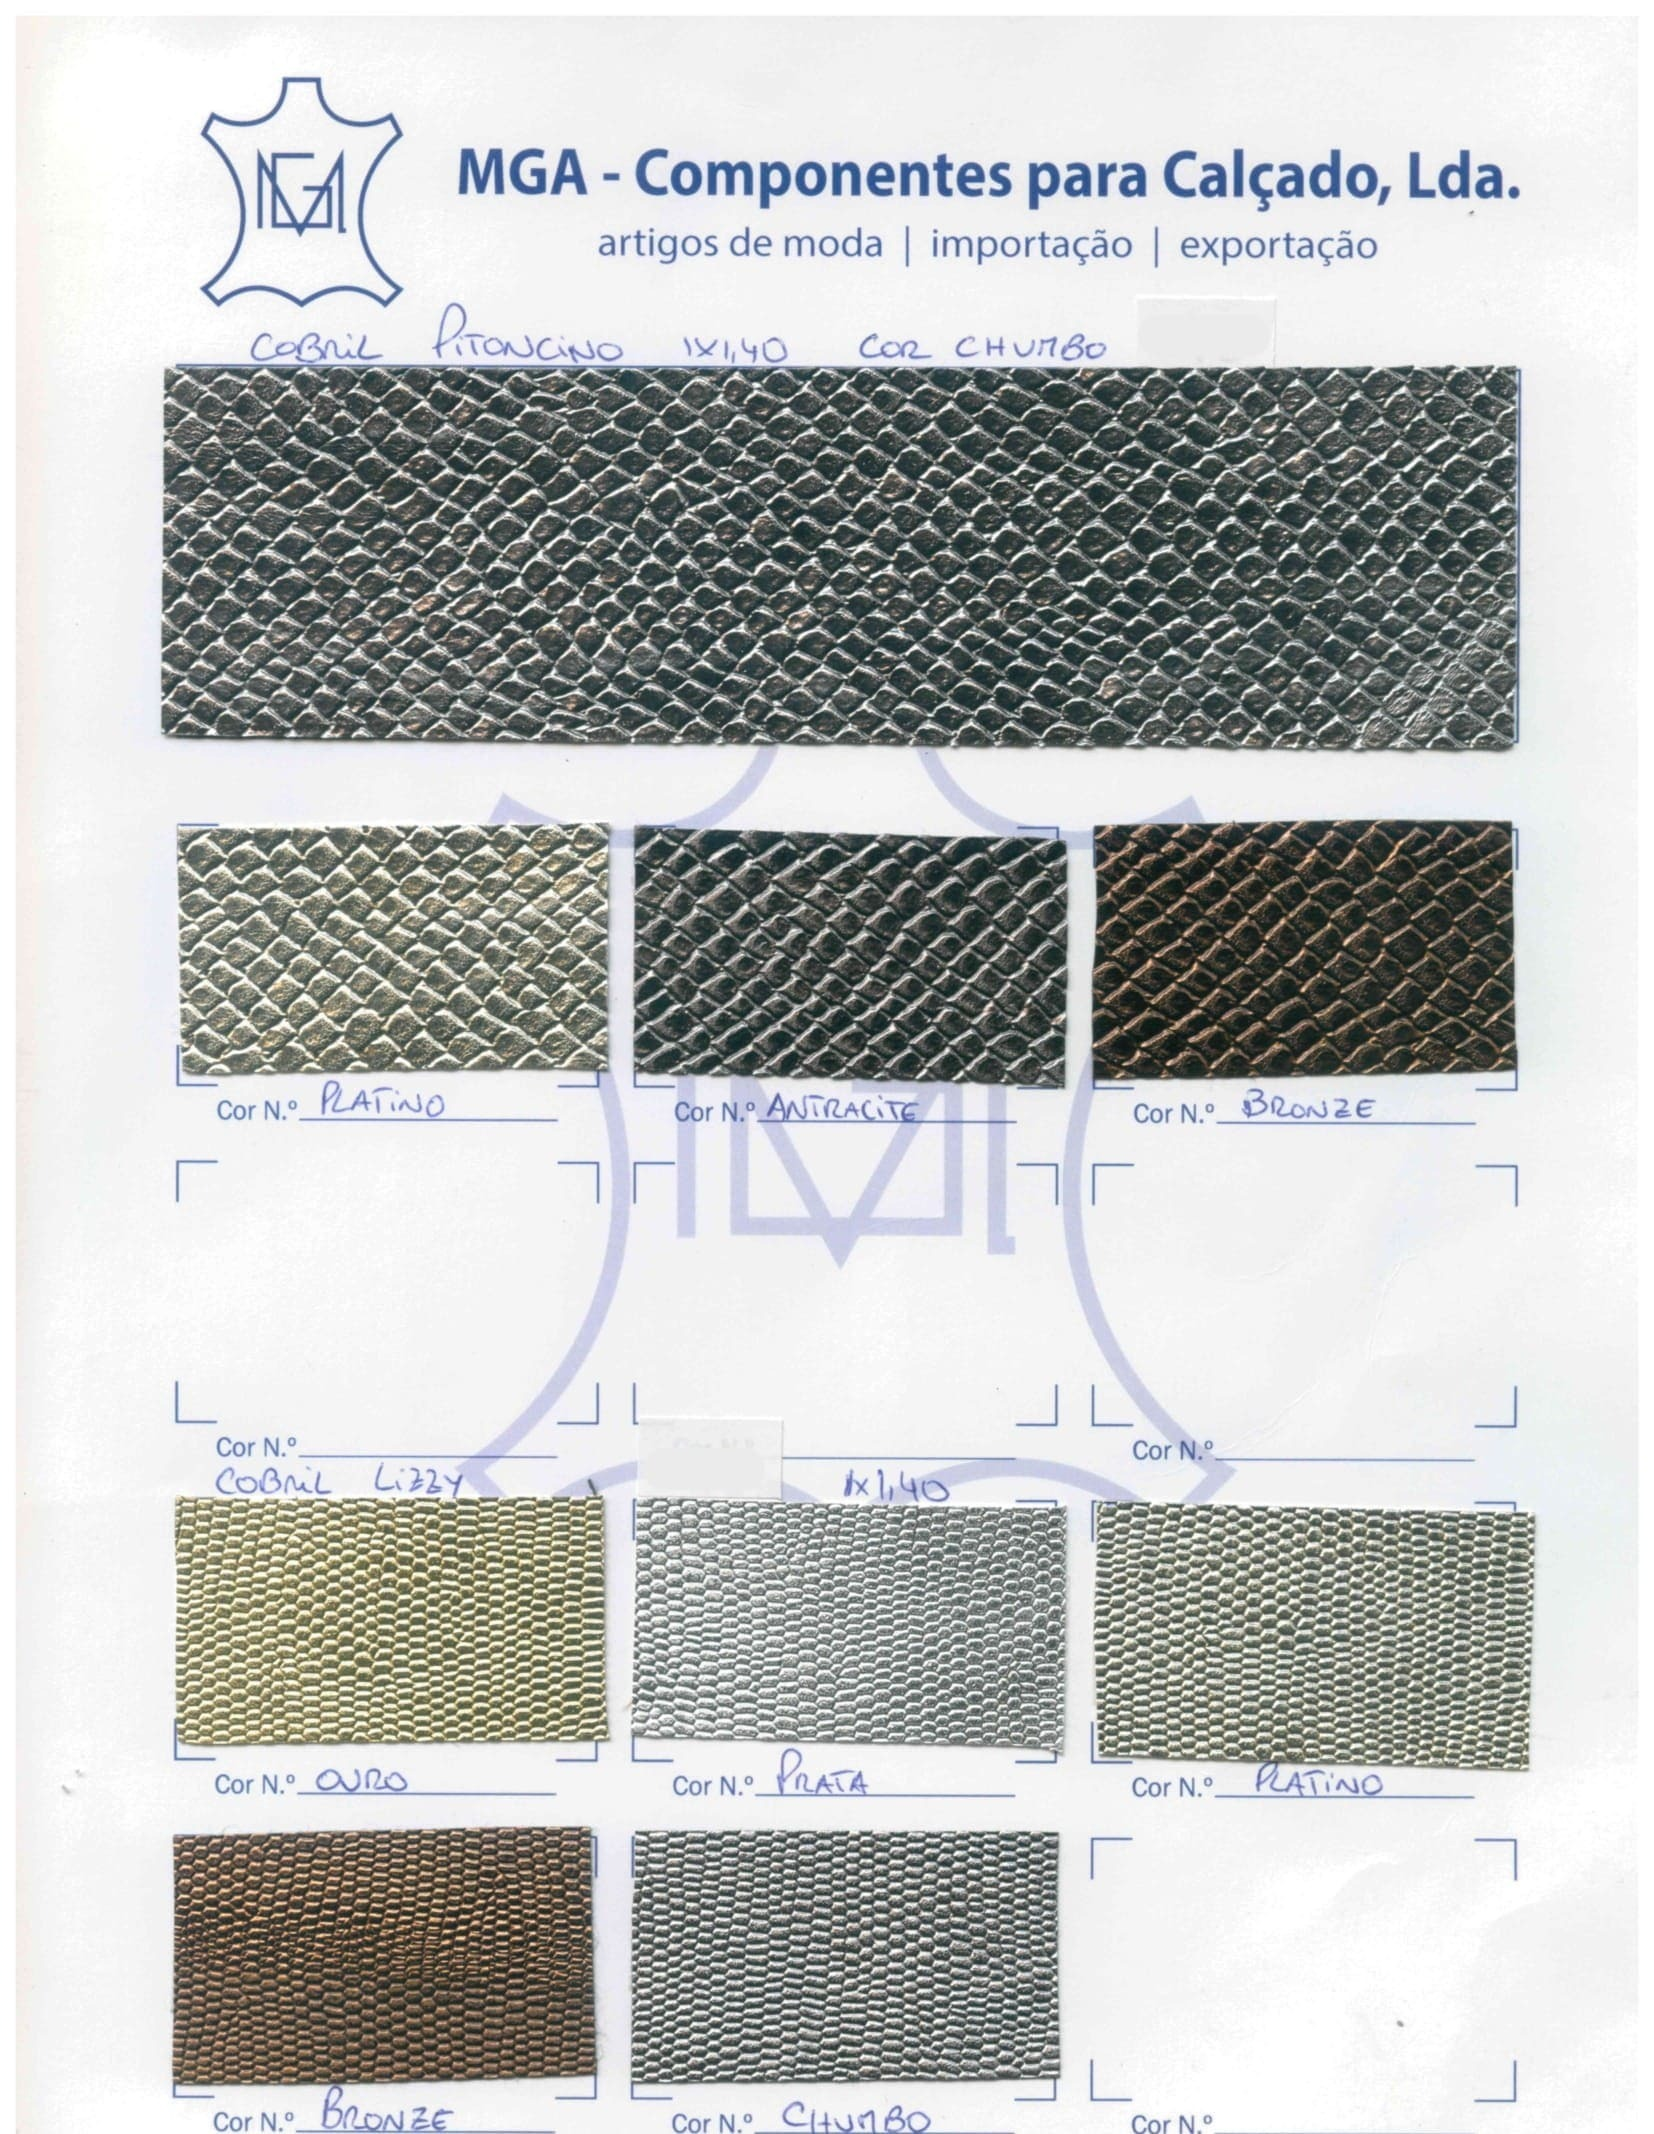 MGA - Componentes para Calçado, Lda.
artigos de moda | importação | exportação
COBRIL PITONCINO 1X1,40 COR CHUMBO
Cor N.º PLATINO Cor N.º ANTRACITE Cor N.º BRONZE
Cor N.º Cor N.º
COBRIL LIZZY 1X1,40
Cor N.º OURO Cor N.º PRATA Cor N.º PLATINO
Cor N.º BRONZE Cor N.º CHUMBO Cor N.º